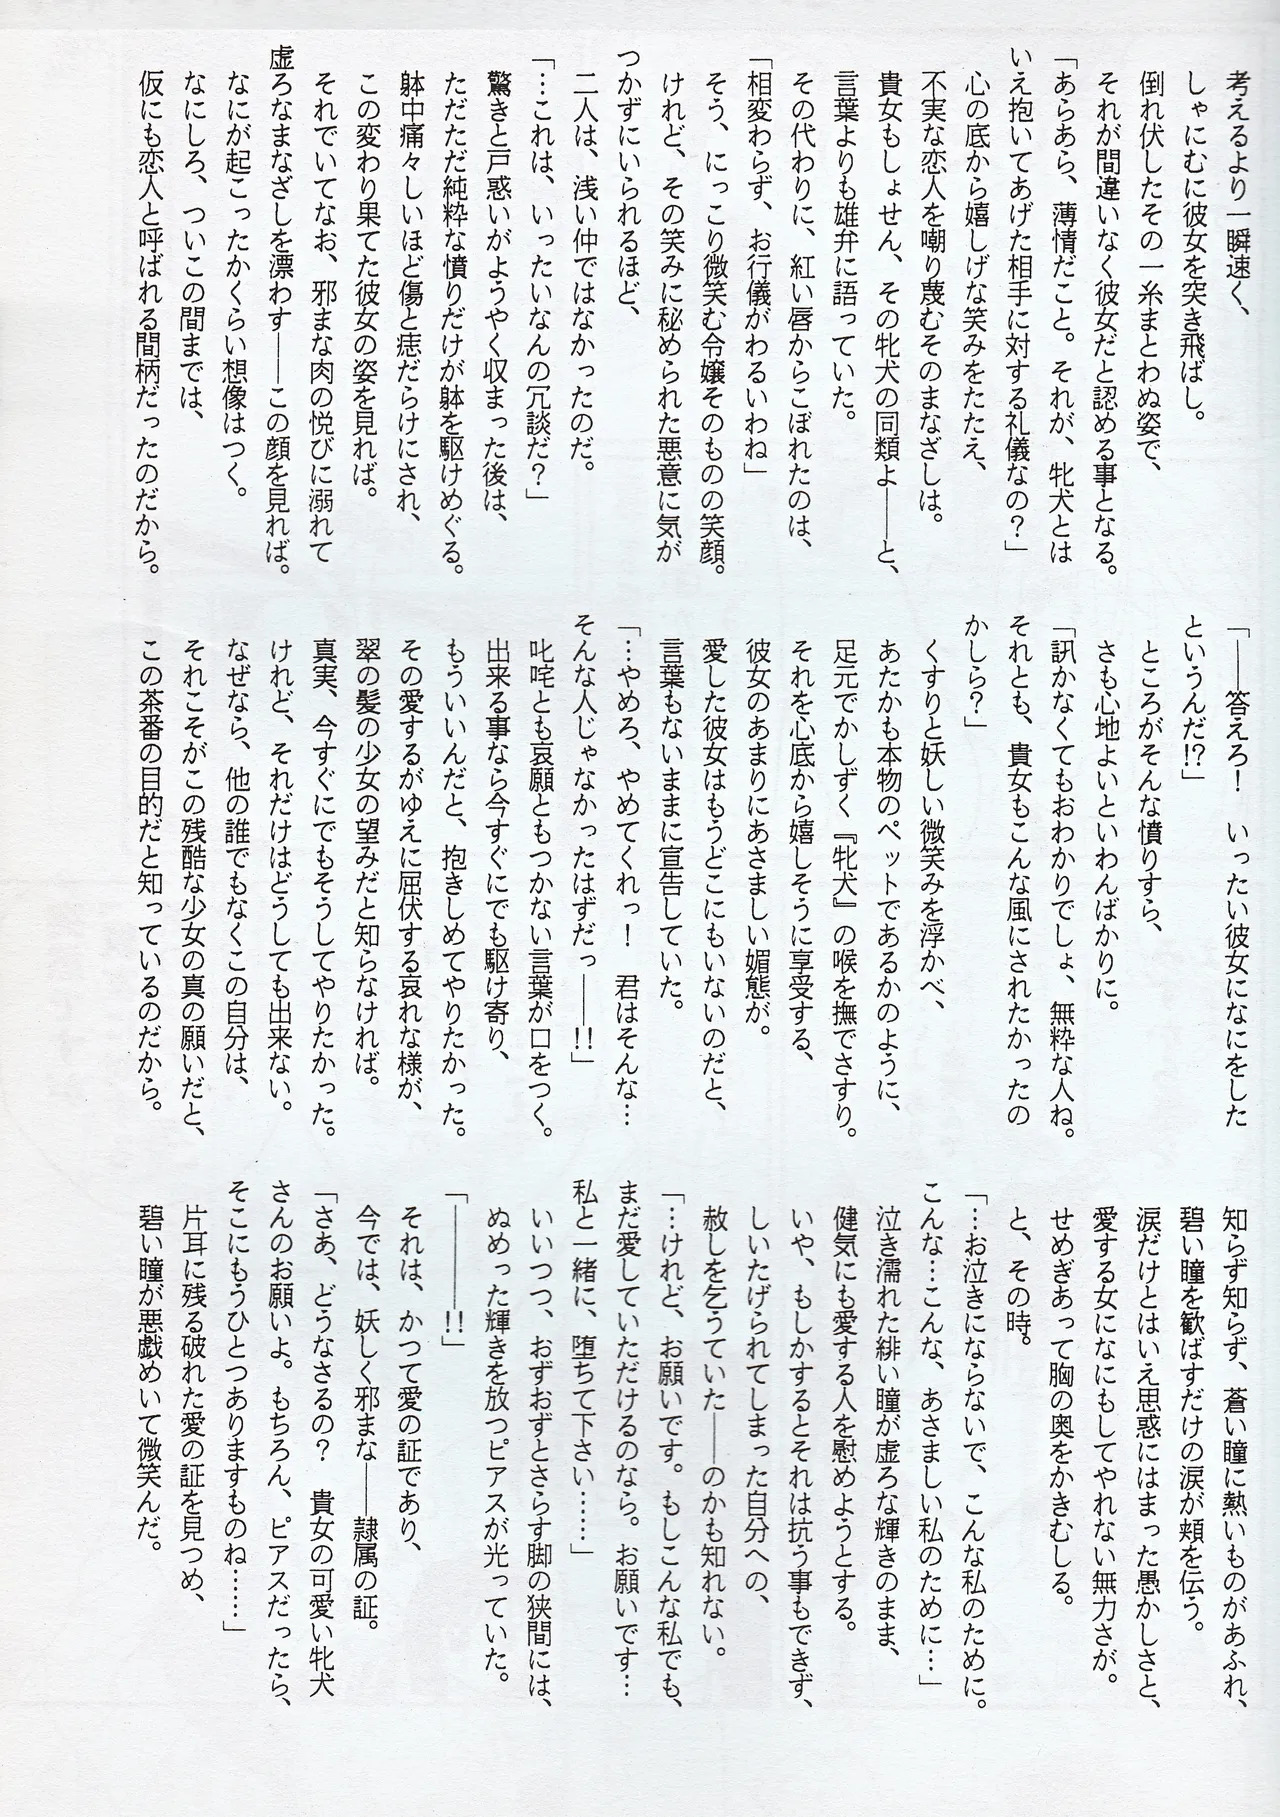 考えるより一瞬速く、
しゃにむに彼女を突き飛ばし。
倒れ伏したその一糸まとわぬ姿で、
それが間違いなく彼女だと認める事となる。
「あらあら、薄情だこと。それが、牝犬とは
いえ抱いてあげた相手に対する礼儀なの？」
心の底から嬉しげな笑みをたたえ、
不実な恋人を嘲り蔑むそのまなざしは。
貴女もしょせん、その牝犬の同類よ――と、
言葉よりも雄弁に語っていた。
その代わりに、紅い唇からこぼれたのは、
「相変わらず、お行儀がわるいわね」
そう、にっこり微笑む令嬢そのものの笑顔。
けれど、その笑みに秘められた悪意に気が
つかずにいられるほど、
二人は、浅い仲ではなかったのだ。
「…これは、いったいなんの冗談だ？」
驚きと戸惑いがようやく収まった後は、
ただただ純粋な憤りだけが躰を駆けめぐる。
躰中痛々しいほど傷と痣だらけにされ、
この変わり果てた彼女の姿を見れば。
それでいてなお、邪まな肉の悦びに溺れて
虚ろなまなざしを漂わす――この顔を見れば。
なにが起こったかくらい想像はつく。
なにしろ、ついこの間までは、
仮にも恋人と呼ばれる間柄だったのだから。
「――答えろ！　いったい彼女になにをした
というんだ!?」
ところがそんな憤りすら、
さも心地よいといわんばかりに。
「訊かなくてもおわかりでしょ、無粋な人ね。
それとも、貴女もこんな風にされたかったの
かしら？」
くすりと妖しい微笑みを浮かべ、
あたかも本物のペットであるかのように、
足元でかしずく『牝犬』の喉を撫でさすり。
それを心底から嬉しそうに享受する、
彼女のあまりにあさましい媚態が。
愛した彼女はもうどこにもいないのだと、
言葉もないままに宣告していた。
「…やめろ、やめてくれっ！　君はそんな…
そんな人じゃなかったはずだっ――!!」
叱咤とも哀願ともつかない言葉が口をつく。
出来る事なら今すぐにでも駆け寄り、
もういいんだと、抱きしめてやりたかった。
その愛するがゆえに屈伏する哀れな様が、
翠の髪の少女の望みだと知らなければ。
真実、今すぐにでもそうしてやりたかった。
けれど、それだけはどうしても出来ない。
なぜなら、他の誰でもなくこの自分は、
それこそがこの残酷な少女の真の願いだと、
この茶番の目的だと知っているのだから。
知らず知らず、蒼い瞳に熱いものがあふれ、
碧い瞳を歓ばすだけの涙が頬を伝う。
涙だけとはいえ思惑にはまった愚かしさと、
愛する女になにもしてやれない無力さが。
せめぎあって胸の奥をかきむしる。
と、その時。
「…お泣きにならないで、こんな私のために。
こんな…こんな、あさましい私のために…」
泣き濡れた緋い瞳が虚ろな輝きのまま、
健気にも愛する人を慰めようとする。
いや、もしかするとそれは抗う事もできず、
しいたげられてしまった自分への、
赦しを乞うていた――のかも知れない。
「…けれど、お願いです。もしこんな私でも、
まだ愛していただけるのなら。お願いです…
私と一緒に、堕ちて下さい……」
いいつつ、おずおずとさらす脚の狭間には、
ぬめった輝きを放つピアスが光っていた。
「――――!!」
それは、かつて愛の証であり、
今では、妖しく邪まな――隷属の証。
「さあ、どうなさるの？　貴女の可愛い牝犬
さんのお願いよ。もちろん、ピアスだったら、
そこにもうひとつありますものね……」
片耳に残る破れた愛の証を見つめ、
碧い瞳が悪戯めいて微笑んだ。